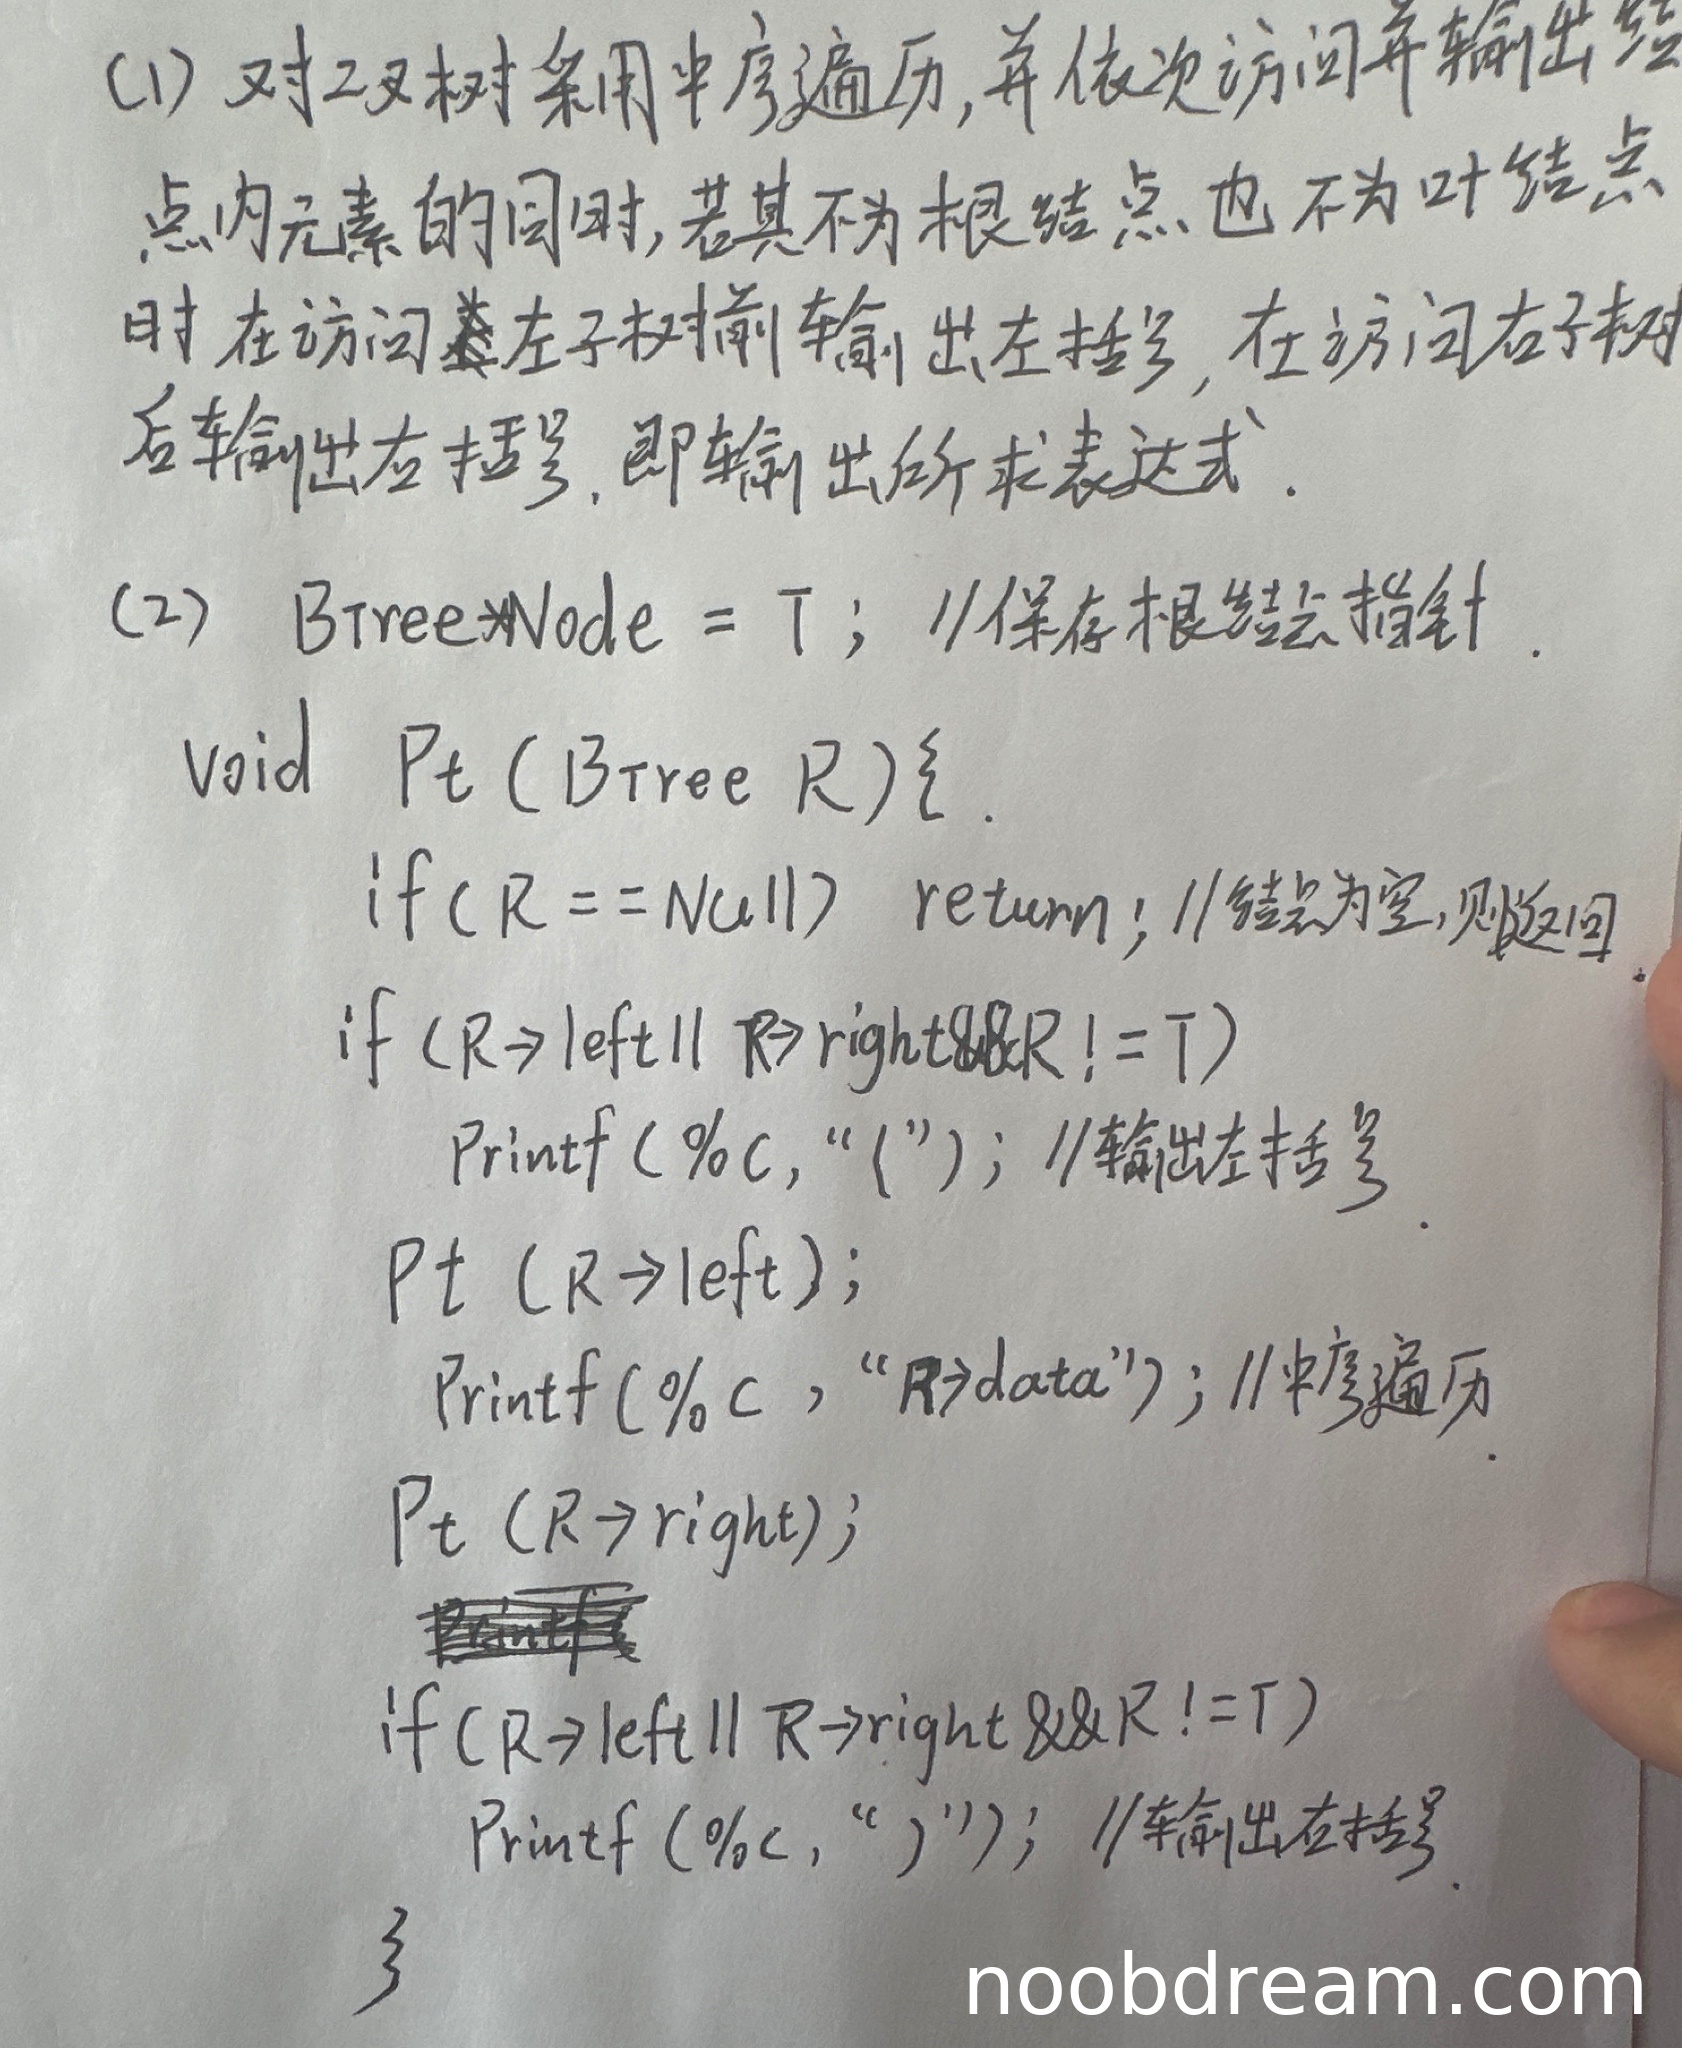 (1) 对二叉树采用中序遍历,并依次访问并输出结
点内元素的同时,若其不为根结点也不为叶结点
时在访问左子树前输出左括号,在访问右子树
后输出右括号.即输出所求表达式.
(2) BTree*Node = T; //保存根结点指针.
void Pt(BTree R){.
if(R==Null) return; //结点为空,则返回.
if(R→left||R→right&&R!=T)
Printf(%c,“(”); //输出左括号.
Pt(R→left);
Printf(%c,“R→data”); //中序遍历.
Pt(R→right);
if(R→left||R→right&&R!=T)
Printf(%c,“)”); //输出右括号.
}
noobdream.com